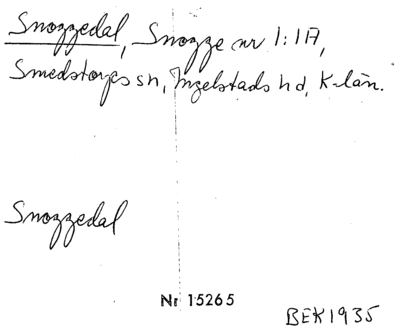 Snoggedal, Snogge nr 1:1A,
Smedstorps sn, Ingelstads hd, K-län.
Snoggedal
Nr 15265
BEK 1935